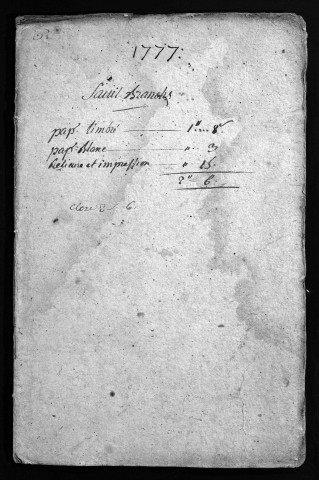 1777.
Saint Branchs
pap.r timbré 1" 8
pap.r blanc " 3
Relieure et impression " 15
2" 6.